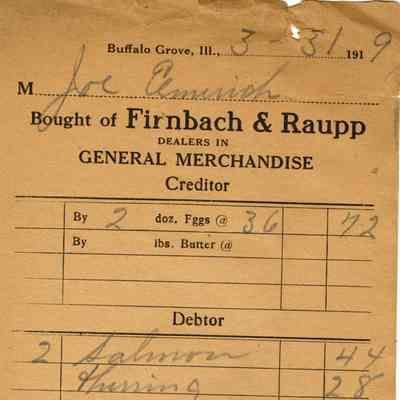 Buffalo Grove, Ill., 3 - 31 1919
M Joe Emerich
Bought of Firnbach & Raupp
DEALERS IN
GENERAL MERCHANDISE
Creditor
By 2 doz. Eggs @ 36 72
By lbs. Butter @
Debtor
2 Salmon 44
Herring 28